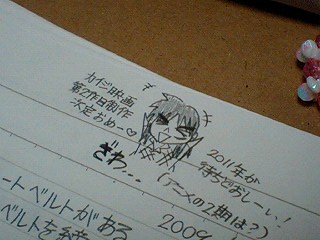 カイジ映画
第2作目制作
決定おめー♡
ざわ…
2011年が
待ちどおしーい!
(アニメの2期は?)
ートベルトがある
2009
ベルトを